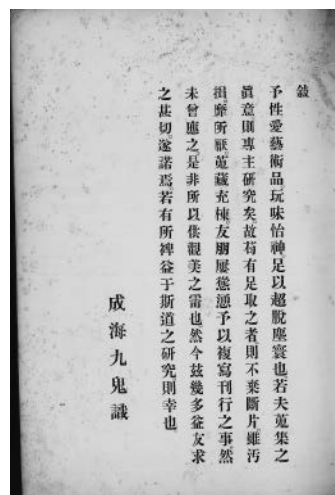 敍
予性愛藝術品、玩味怡神足以超脫塵寰也若夫蒐集之
眞意則專主硏究矣。故苟有足取之者、則不棄斷片、雖汚
損。靡所厭。蒐藏充棟。友朋屢慫慂予以複寫刊行之事。然
未曾應之。是非所以供觀美之需也。然今玆幾多益友求
之甚切。遂諾焉。若有所裨益于斯道之硏究則幸也。
成海九鬼識